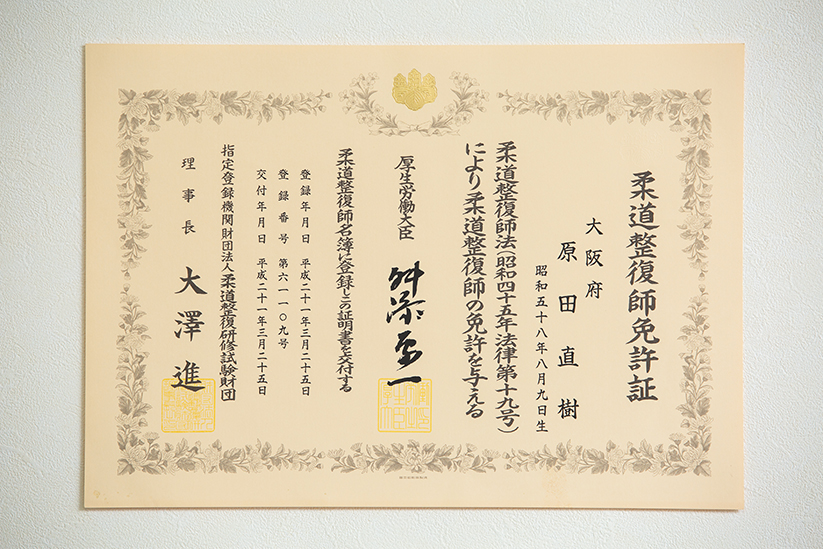 柔道整復師免許証
大阪府
原田直樹
昭和五十八年八月九日生
柔道整復師法(昭和四十五年法律第十九号)
により柔道整復師の免許を与える
厚生労働大臣 舛添要一
柔道整復師名簿に登録しこの証明書を交付する
登録年月日 平成二十一年三月二十五日
登録番号 第六一一〇九号
交付年月日 平成二十一年三月二十五日
指定登録機関財団法人柔道整復研修試験財団
理事長 大澤進